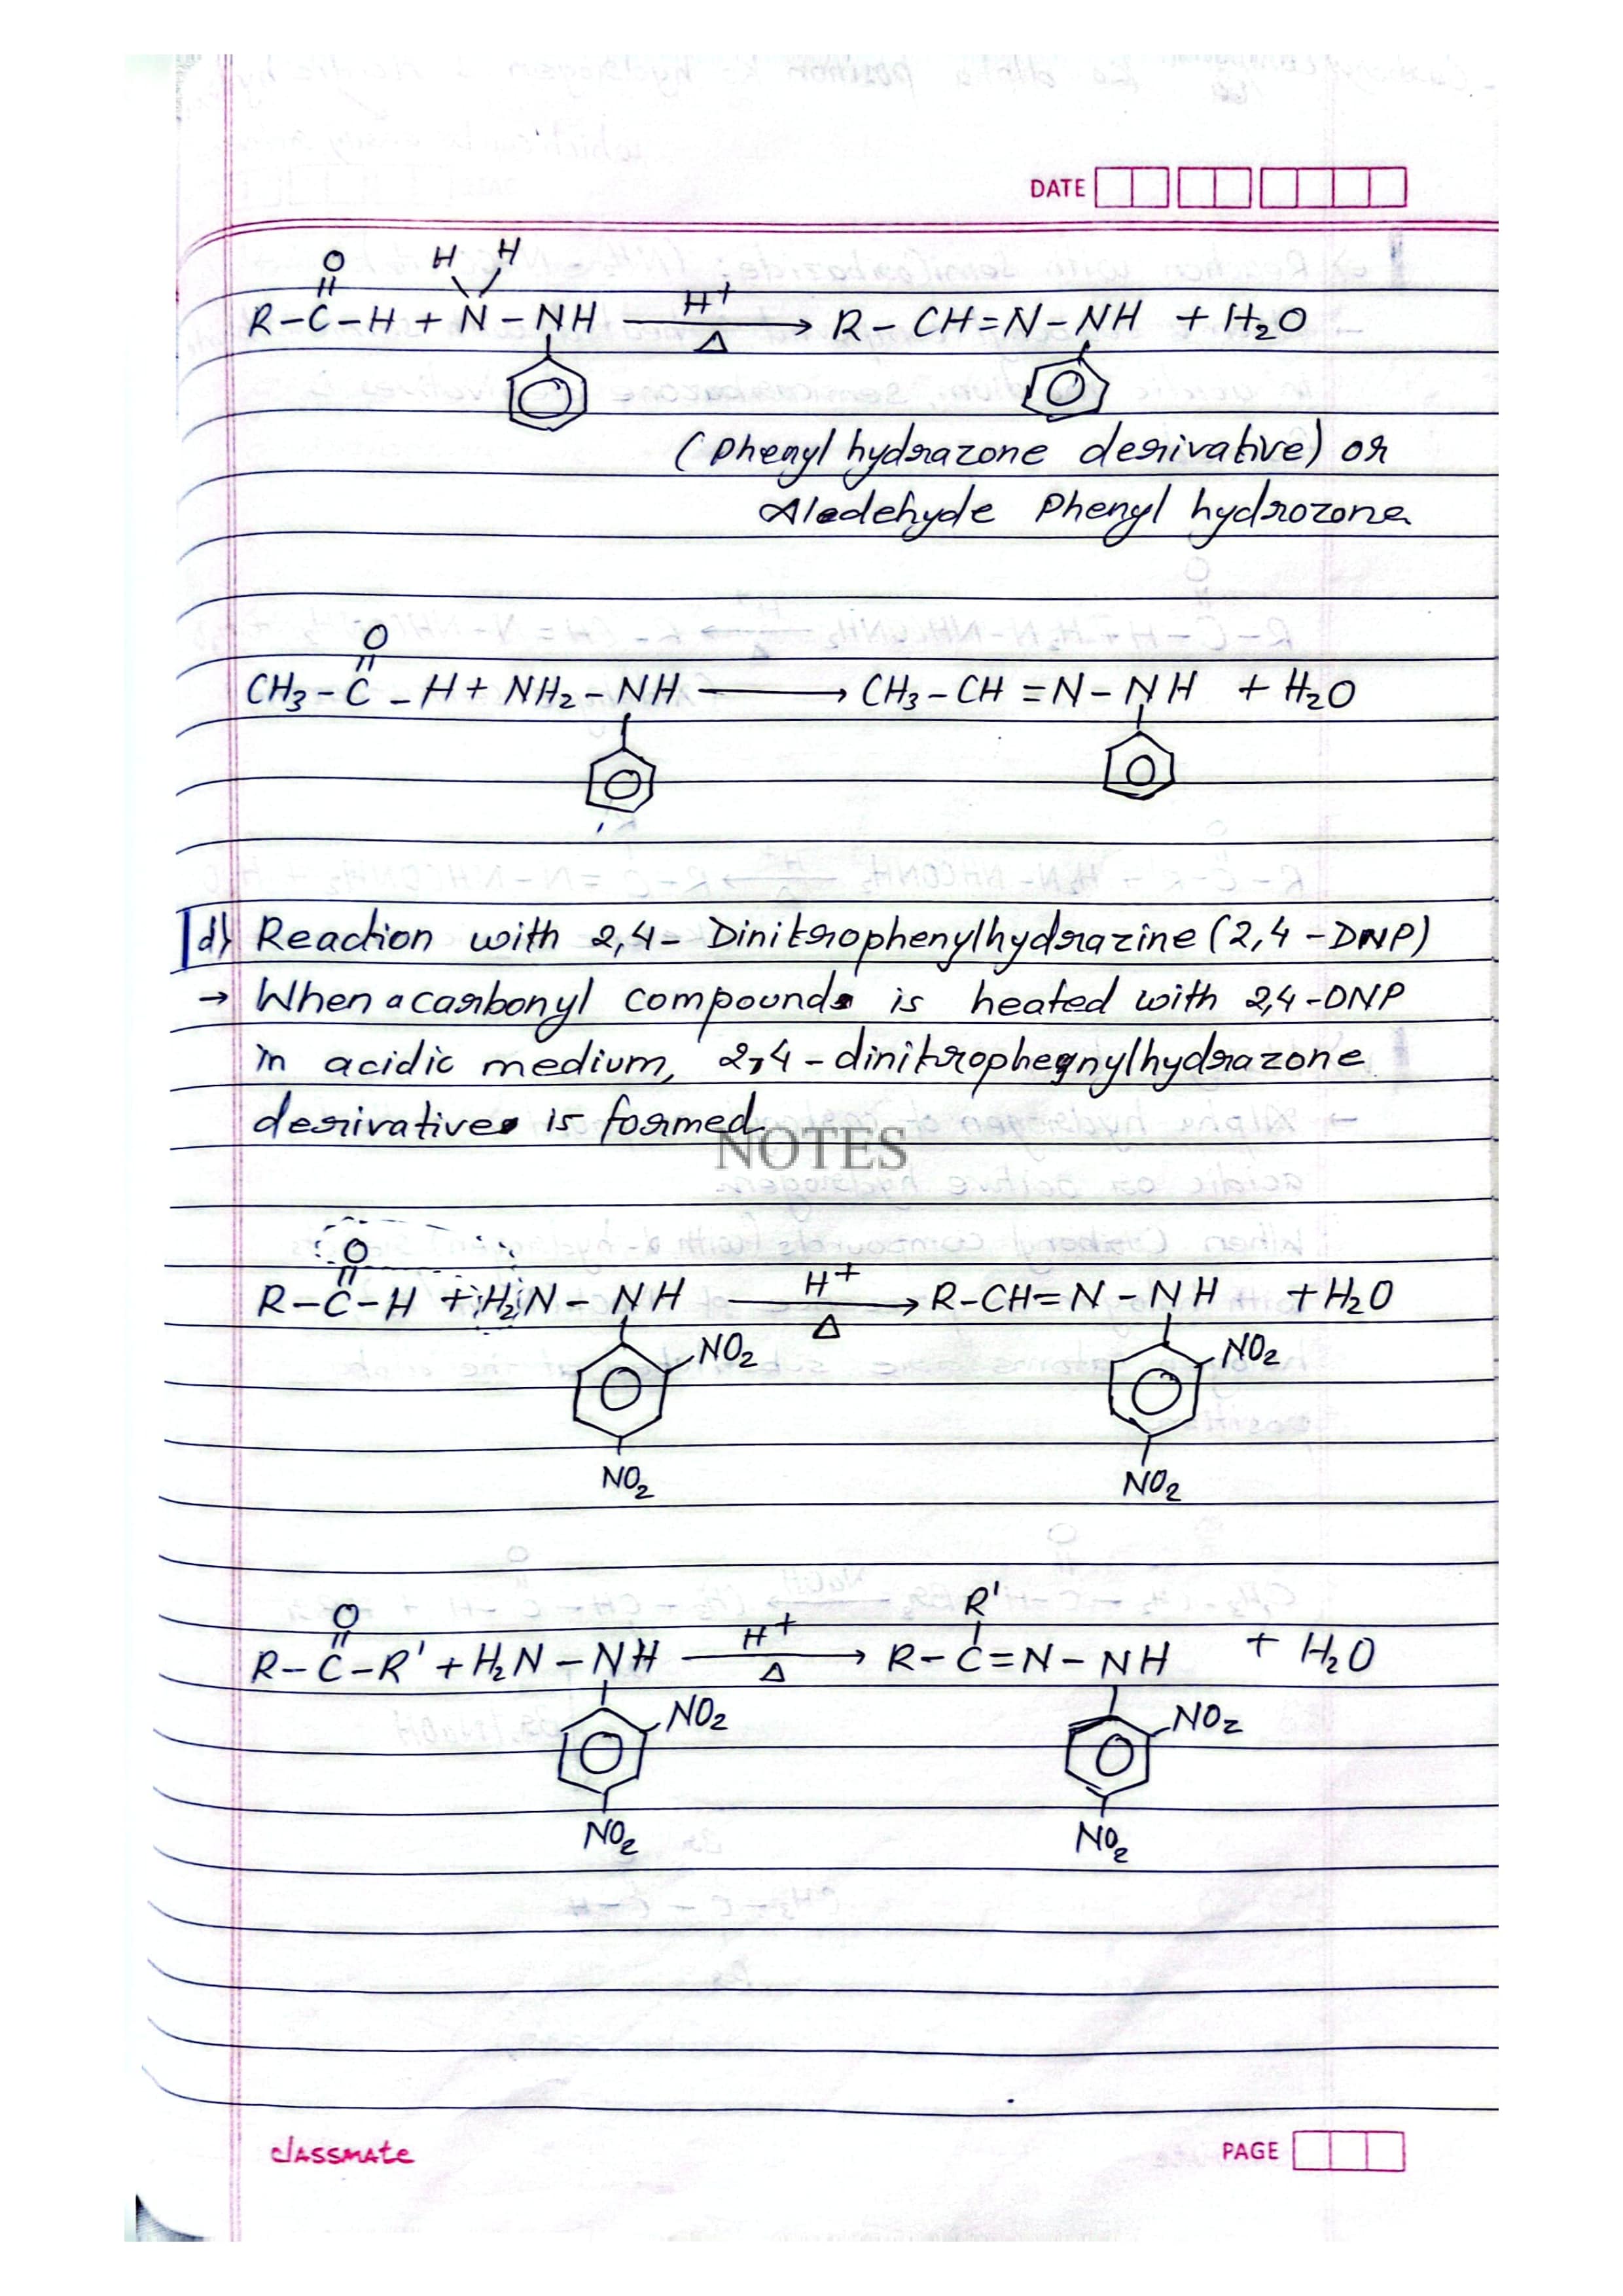 DATE
O H H
R-C-H + N-NH H+ Δ → R-CH=N-NH + H₂O
(Phenyl hydrazone derivative) or
Aledehyde Phenyl hydrozone
O
CH₃-C-H + NH₂-NH → CH₃-CH=N-NH + H₂O
d) Reaction with 2,4- Dinitrophenylhydrazine (2,4-DNP)
→ When a carbonyl compound is heated with 2,4-DNP
in acidic medium, 2,4-dinitrophenylhydrazone
derivative is formed.
NOTES
O
R-C-H + H₂N-NH H+ Δ → R-CH=N-NH + H₂O
NO₂ NO₂
NO₂ NO₂
O R'
R-C-R' + H₂N-NH H+ Δ → R-C=N-NH + H₂O
NO₂ NO₂
NO₂ NO₂
classmate PAGE